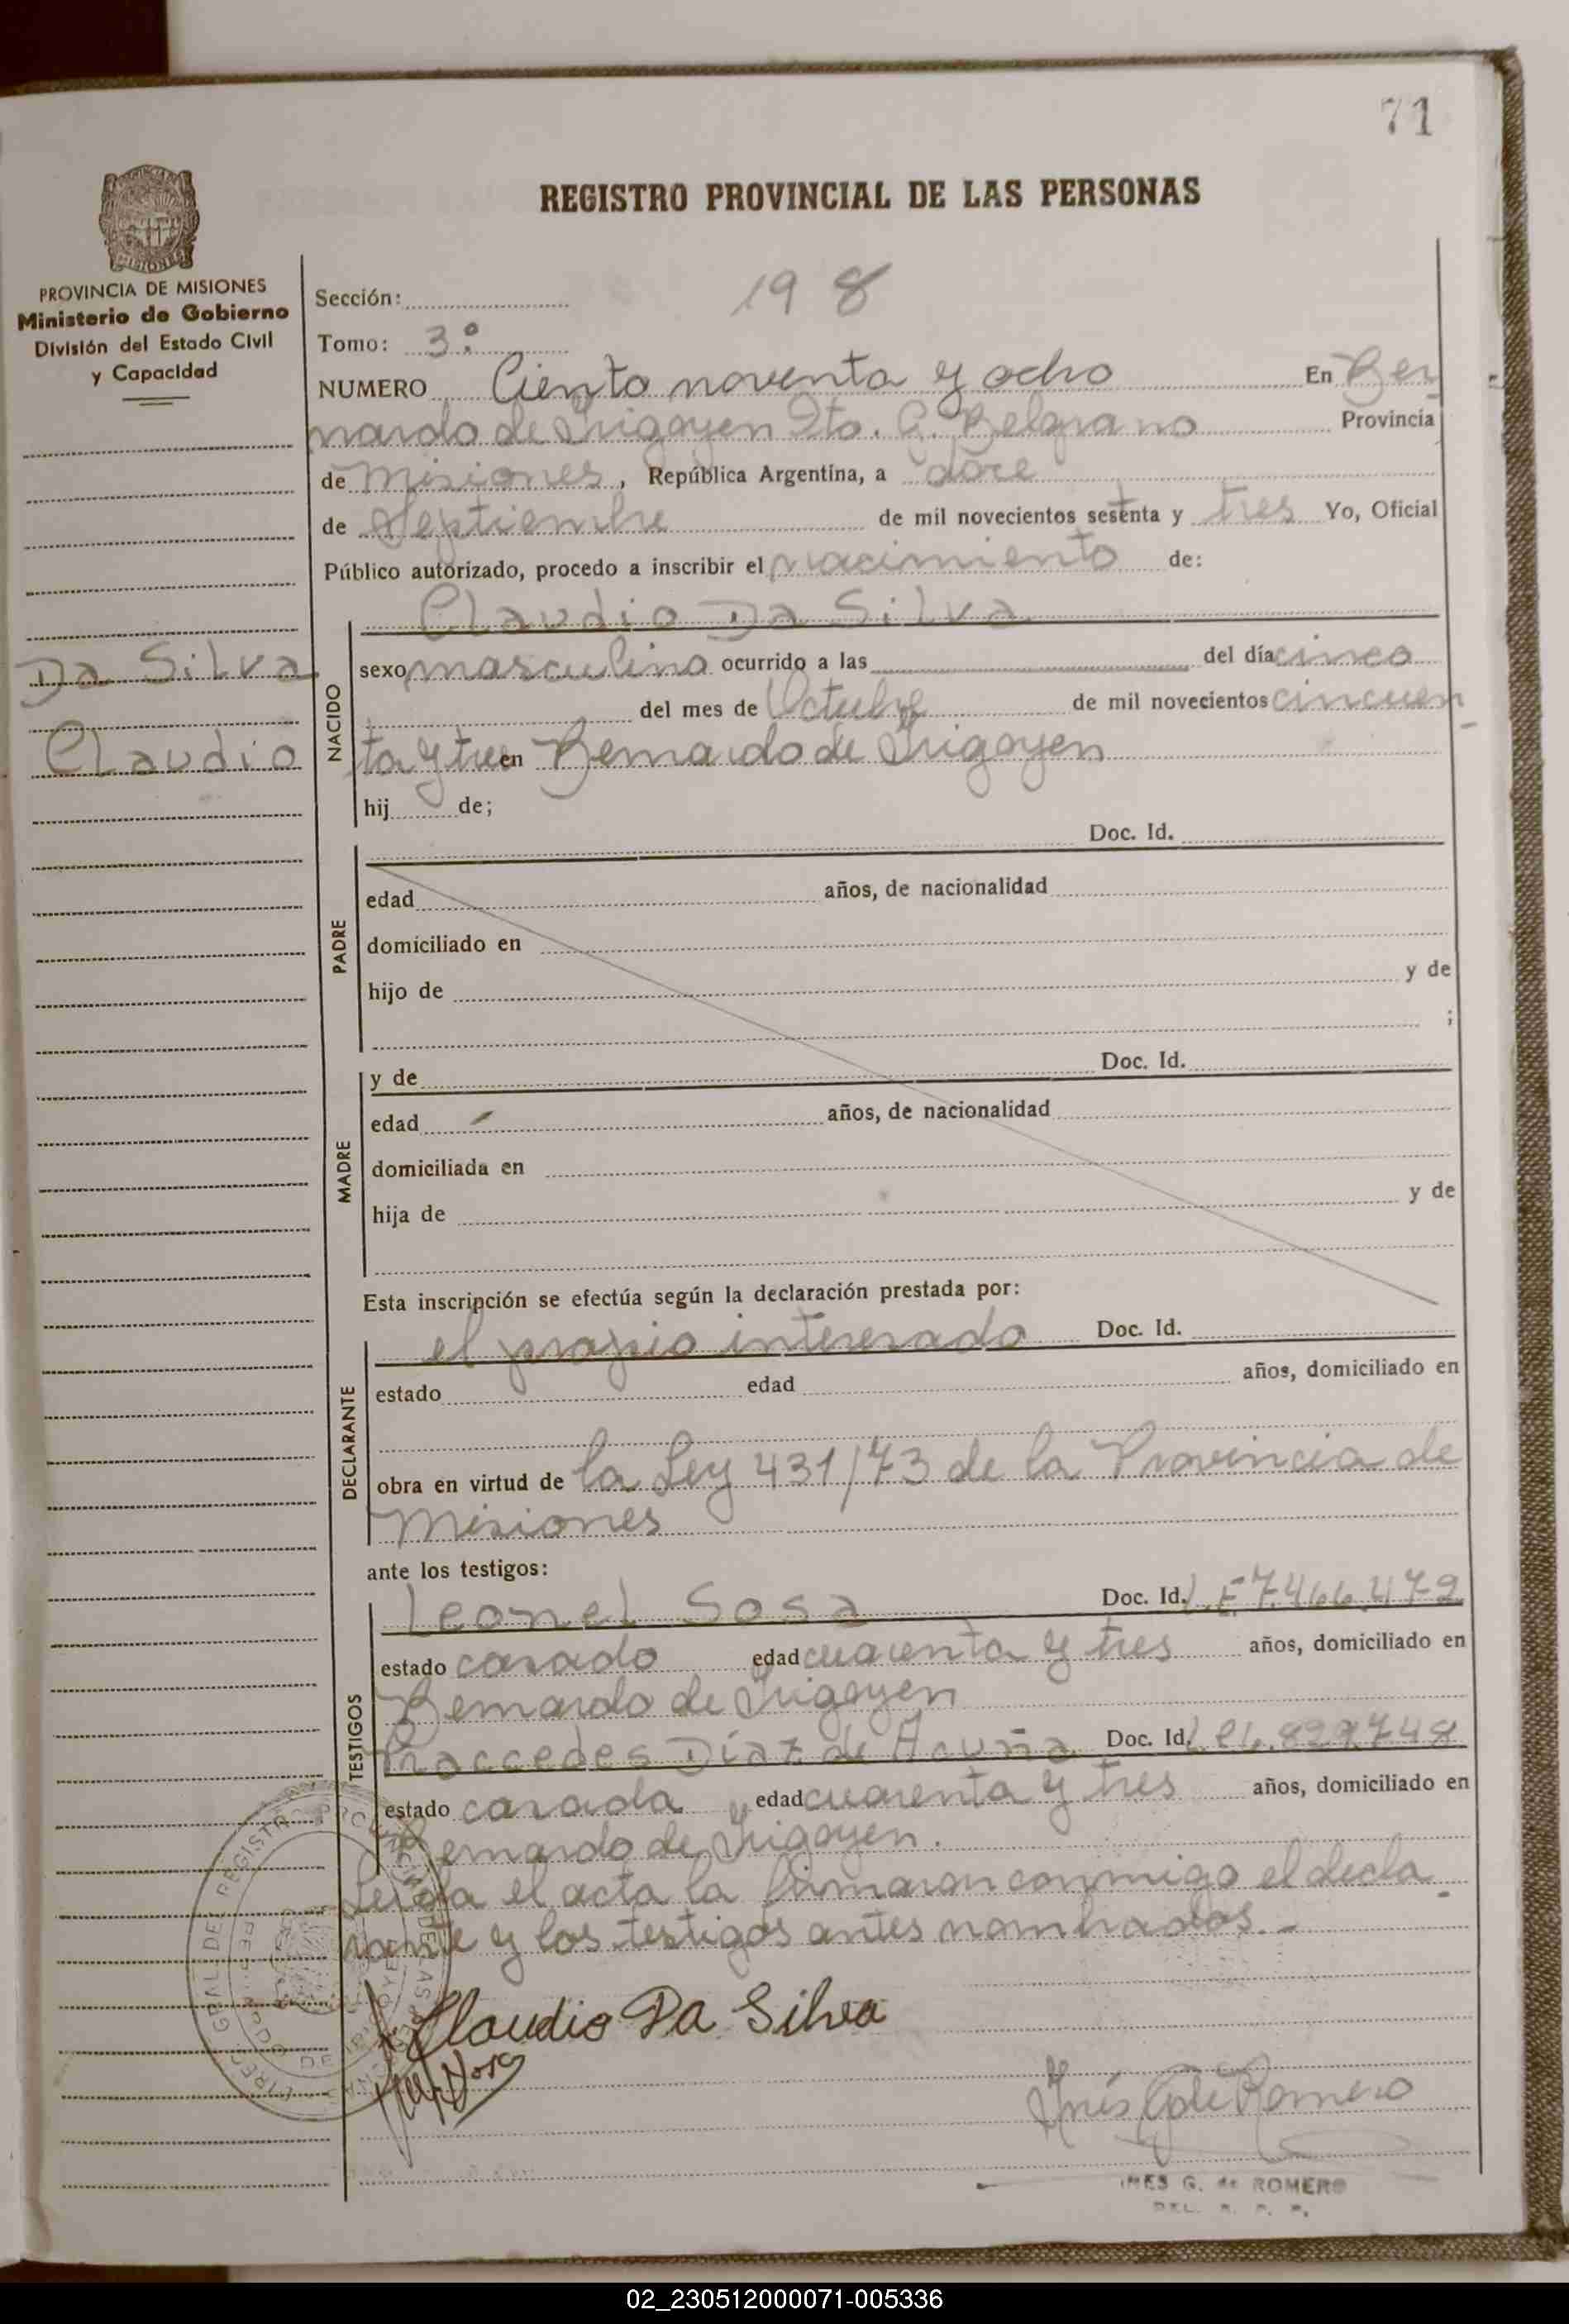 71
REGISTRO PROVINCIAL DE LAS PERSONAS
PROVINCIA DE MISIONES
Ministerio de Gobierno
División del Estado Civil
y Capacidad
198
Sección:
Tomo: 3º
NUMERO Ciento noventa y ocho En Ber
nardo de Irigoyen Dto. G. Belgrano Provincia
de Misiones, República Argentina, a doce
de Septiembre de mil novecientos sesenta y tres Yo, Oficial
Público autorizado, procedo a inscribir el nacimiento de:
Claudio Da Silva
Da Silva
Claudio
NACIDO
sexo masculino ocurrido a las del día cinco
del mes de Octubre de mil novecientos cincuen
ta y tres en Bernardo de Irigoyen
hij de;
Doc. Id.
PADRE
edad años, de nacionalidad
domiciliado en
hijo de y de
;
y de Doc. Id.
MADRE
edad años, de nacionalidad
domiciliada en
hija de y de
Esta inscripción se efectúa según la declaración prestada por:
el propio interesado Doc. Id.
DECLARANTE
estado edad años, domiciliado en
obra en virtud de la Ley 431/73 de la Provincia de
Misiones
ante los testigos:
Leonel Sosa Doc. Id. L.E 7.466.472
TESTIGOS
estado casado edad cuarenta y tres años, domiciliado en
Bernardo de Irigoyen
Díaz de Acuña Doc. Id.
estado casada edad cuarenta y tres años, domiciliado en
Bernardo de Irigoyen.
Leída el acta la firmaron conmigo el decla
rante y los testigos antes nombrados.-
Claudio Da Silva
Inés G de Romero
INES G. de ROMERO
DEL. R. P. P.
02_230512000071-005336